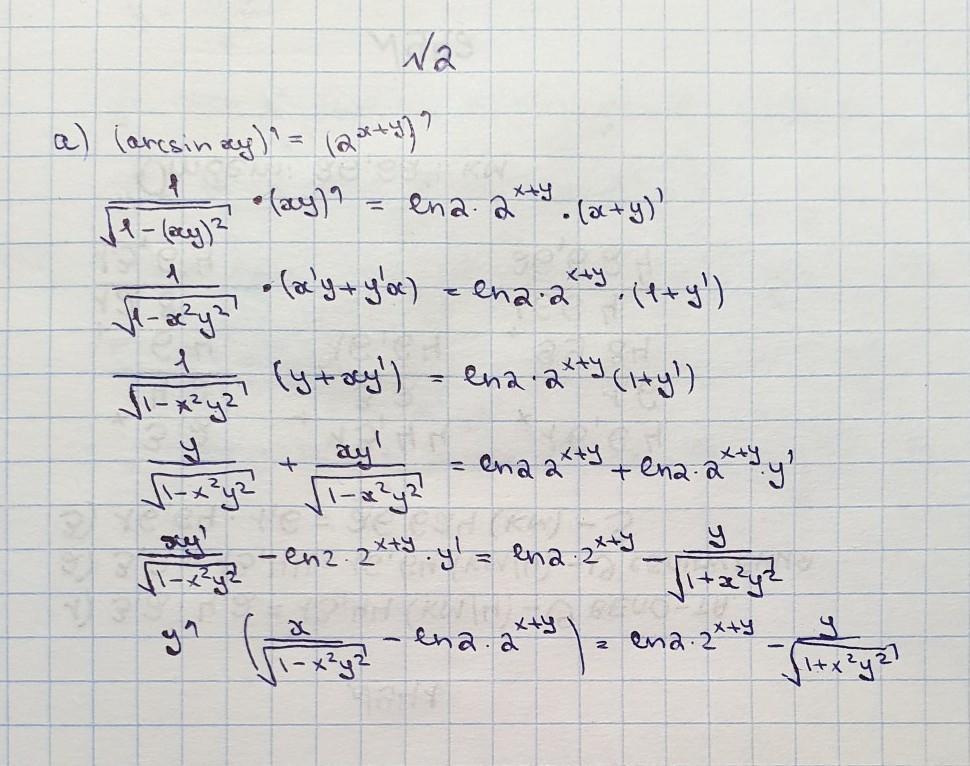 √2
a) (arcsin xy)' = (2^{x+y})'
\frac{1}{\sqrt{1-(xy)^2}} · (xy)' = ln2 · 2^{x+y} · (x+y)'
\frac{1}{\sqrt{1-x^2y^2}} · (x'y+y'x) = ln2 · 2^{x+y} · (1+y')
\frac{1}{\sqrt{1-x^2y^2}} (y+xy') = ln2 · 2^{x+y} (1+y')
\frac{y}{\sqrt{1-x^2y^2}} + \frac{xy'}{\sqrt{1-x^2y^2}} = ln2 2^{x+y} + ln2 · 2^{x+y} · y'
\frac{xy'}{\sqrt{1-x^2y^2}} - ln2 · 2^{x+y} · y' = ln2 · 2^{x+y} - \frac{y}{\sqrt{1+x^2y^2}}
y' (\frac{x}{\sqrt{1-x^2y^2}} - ln2 · 2^{x+y}) = ln2 · 2^{x+y} - \frac{y}{\sqrt{1+x^2y^2}}